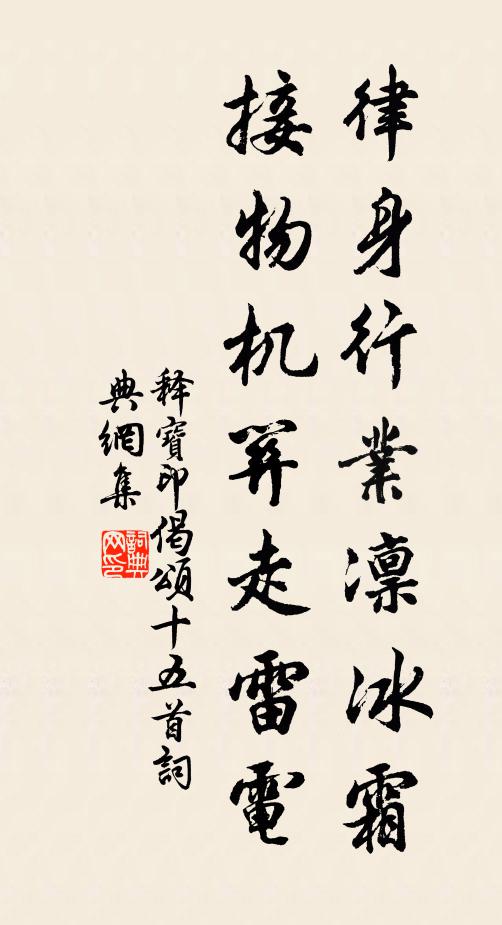 律身行業凜冰霜
接物机筭走雷電
释寶印偈頌十五首詞
典網集
詞典
网印